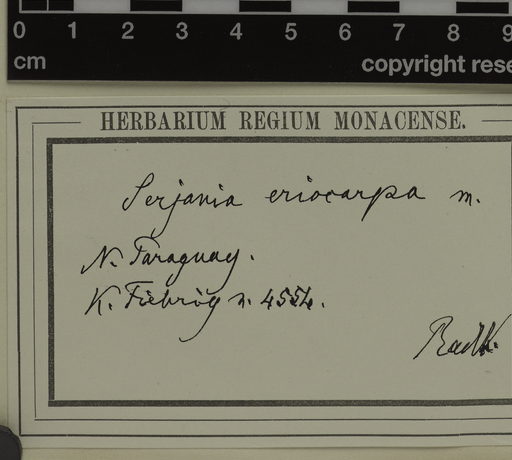 0 1 2 3 4 5 6 7 8 9
cm
copyright rese
HERBARIUM REGIUM MONACENSE.
Serjania eriocarpa m.
N. Paraguay.
K. Fiebrig n. 4554.
Radlk.